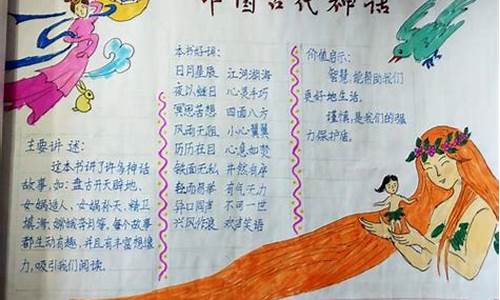 中国古代神话
主要讲述：
这本书讲了许多神话
故事，如：盘古开天辟地、
女娲造人、女娲补天、精卫
填海、嫦娥奔月等，每个故事
都生动有趣，并且有丰富想像
力，吸引我们阅读。
本书好词：
日月星辰 江河湖海
夜以继日 心灵手巧
冥思苦想 四面八方
风雨无阻 小心翼翼
历历在目 心急如焚
铁面无私 井然有序
轻而易举 有气无力
异口同声 不可一世
兴风作浪 欢声笑语
价值启示：
智慧，能帮助我们
更好地生活。
谨慎，是我们的强
力保护盾。